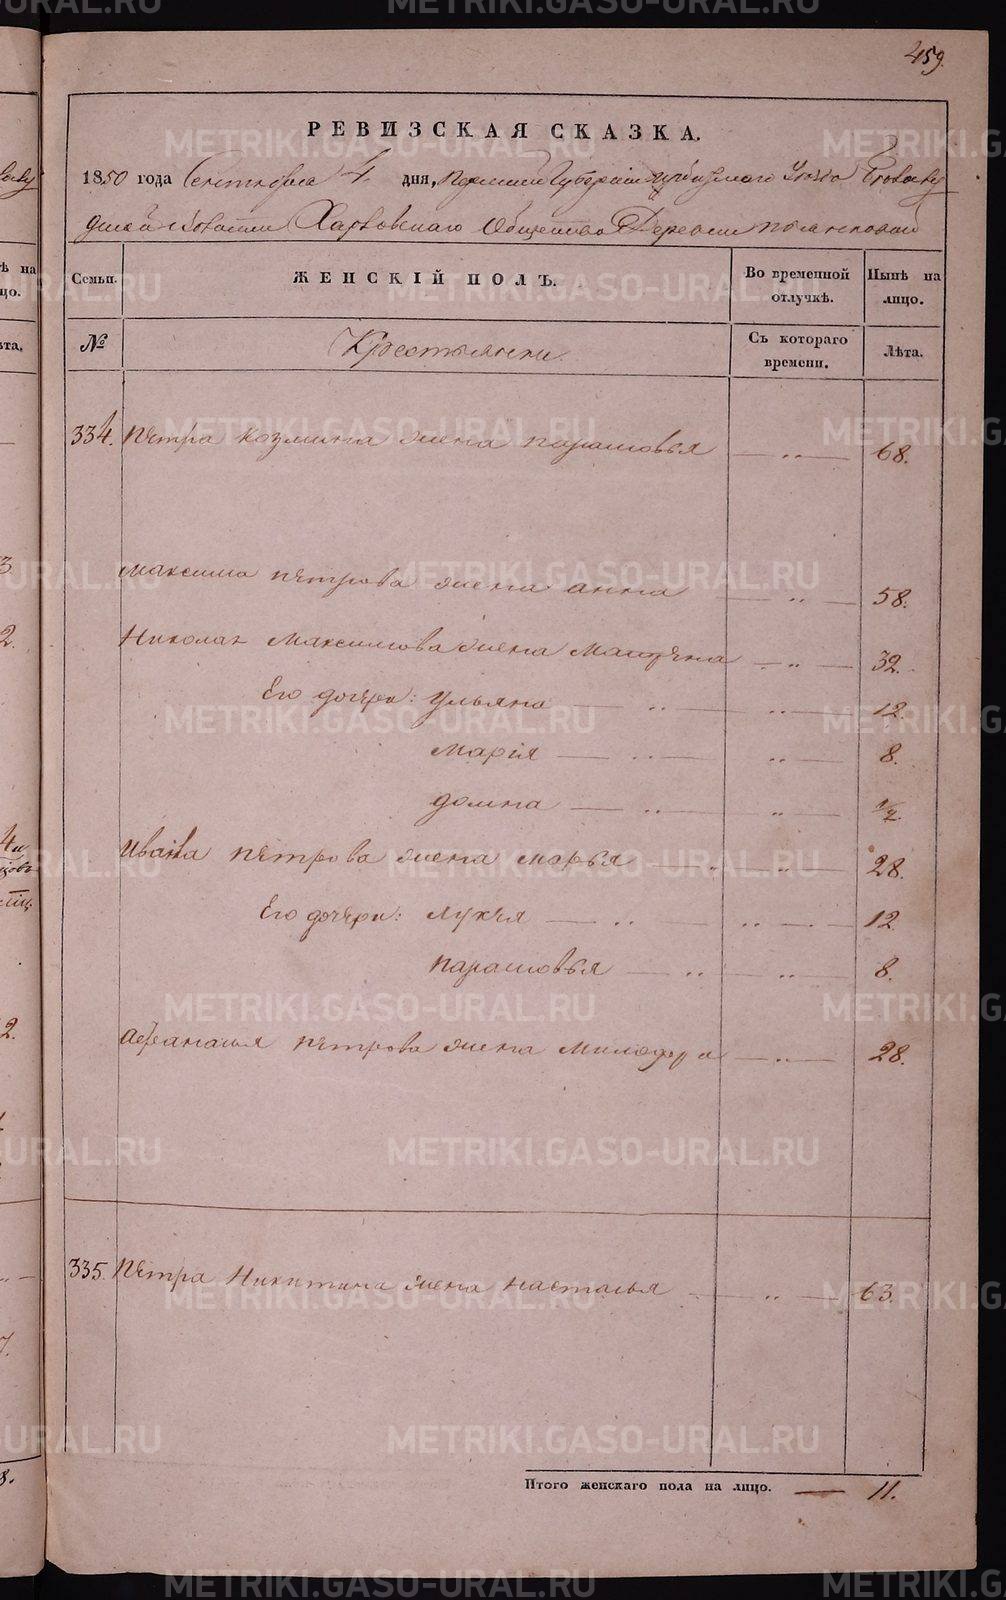 459.
РЕВИЗСКАЯ СКАЗКА.
1850 года Сентября 4 дня, Пермской Губернии Ирбитского Уезда
Волости Харловского Общества Деревни
Семьи. ЖЕНСКІЙ ПОЛЪ. Во временной отлучкѣ. Нынѣ на лицо.
№ Крестьянки Съ котораго времени. Лѣта.
334. Пѣтра Козмина жена парасковья — „ — 68.
Максима пѣтрова жена анна — „ — 58.
Николая Максимова жена Матрена — „ — 32.
Его дочѣри: ульяна — „ — „ — 12.
марія — „ — „ — 8.
домна — „ — „ — 1/2.
Ивана пѣтрова жена марья — „ — 28.
Его дочѣри: лукѣя — „ — „ — 12.
парасковья — „ — „ — 8.
афанасья пѣтрова жена Милодора — „ — 28.
335. Пѣтра Никитина жена настасья — „ — 63.
Итого женскаго пола на лицо. — 11.
METRIKI.GASO-URAL.RU